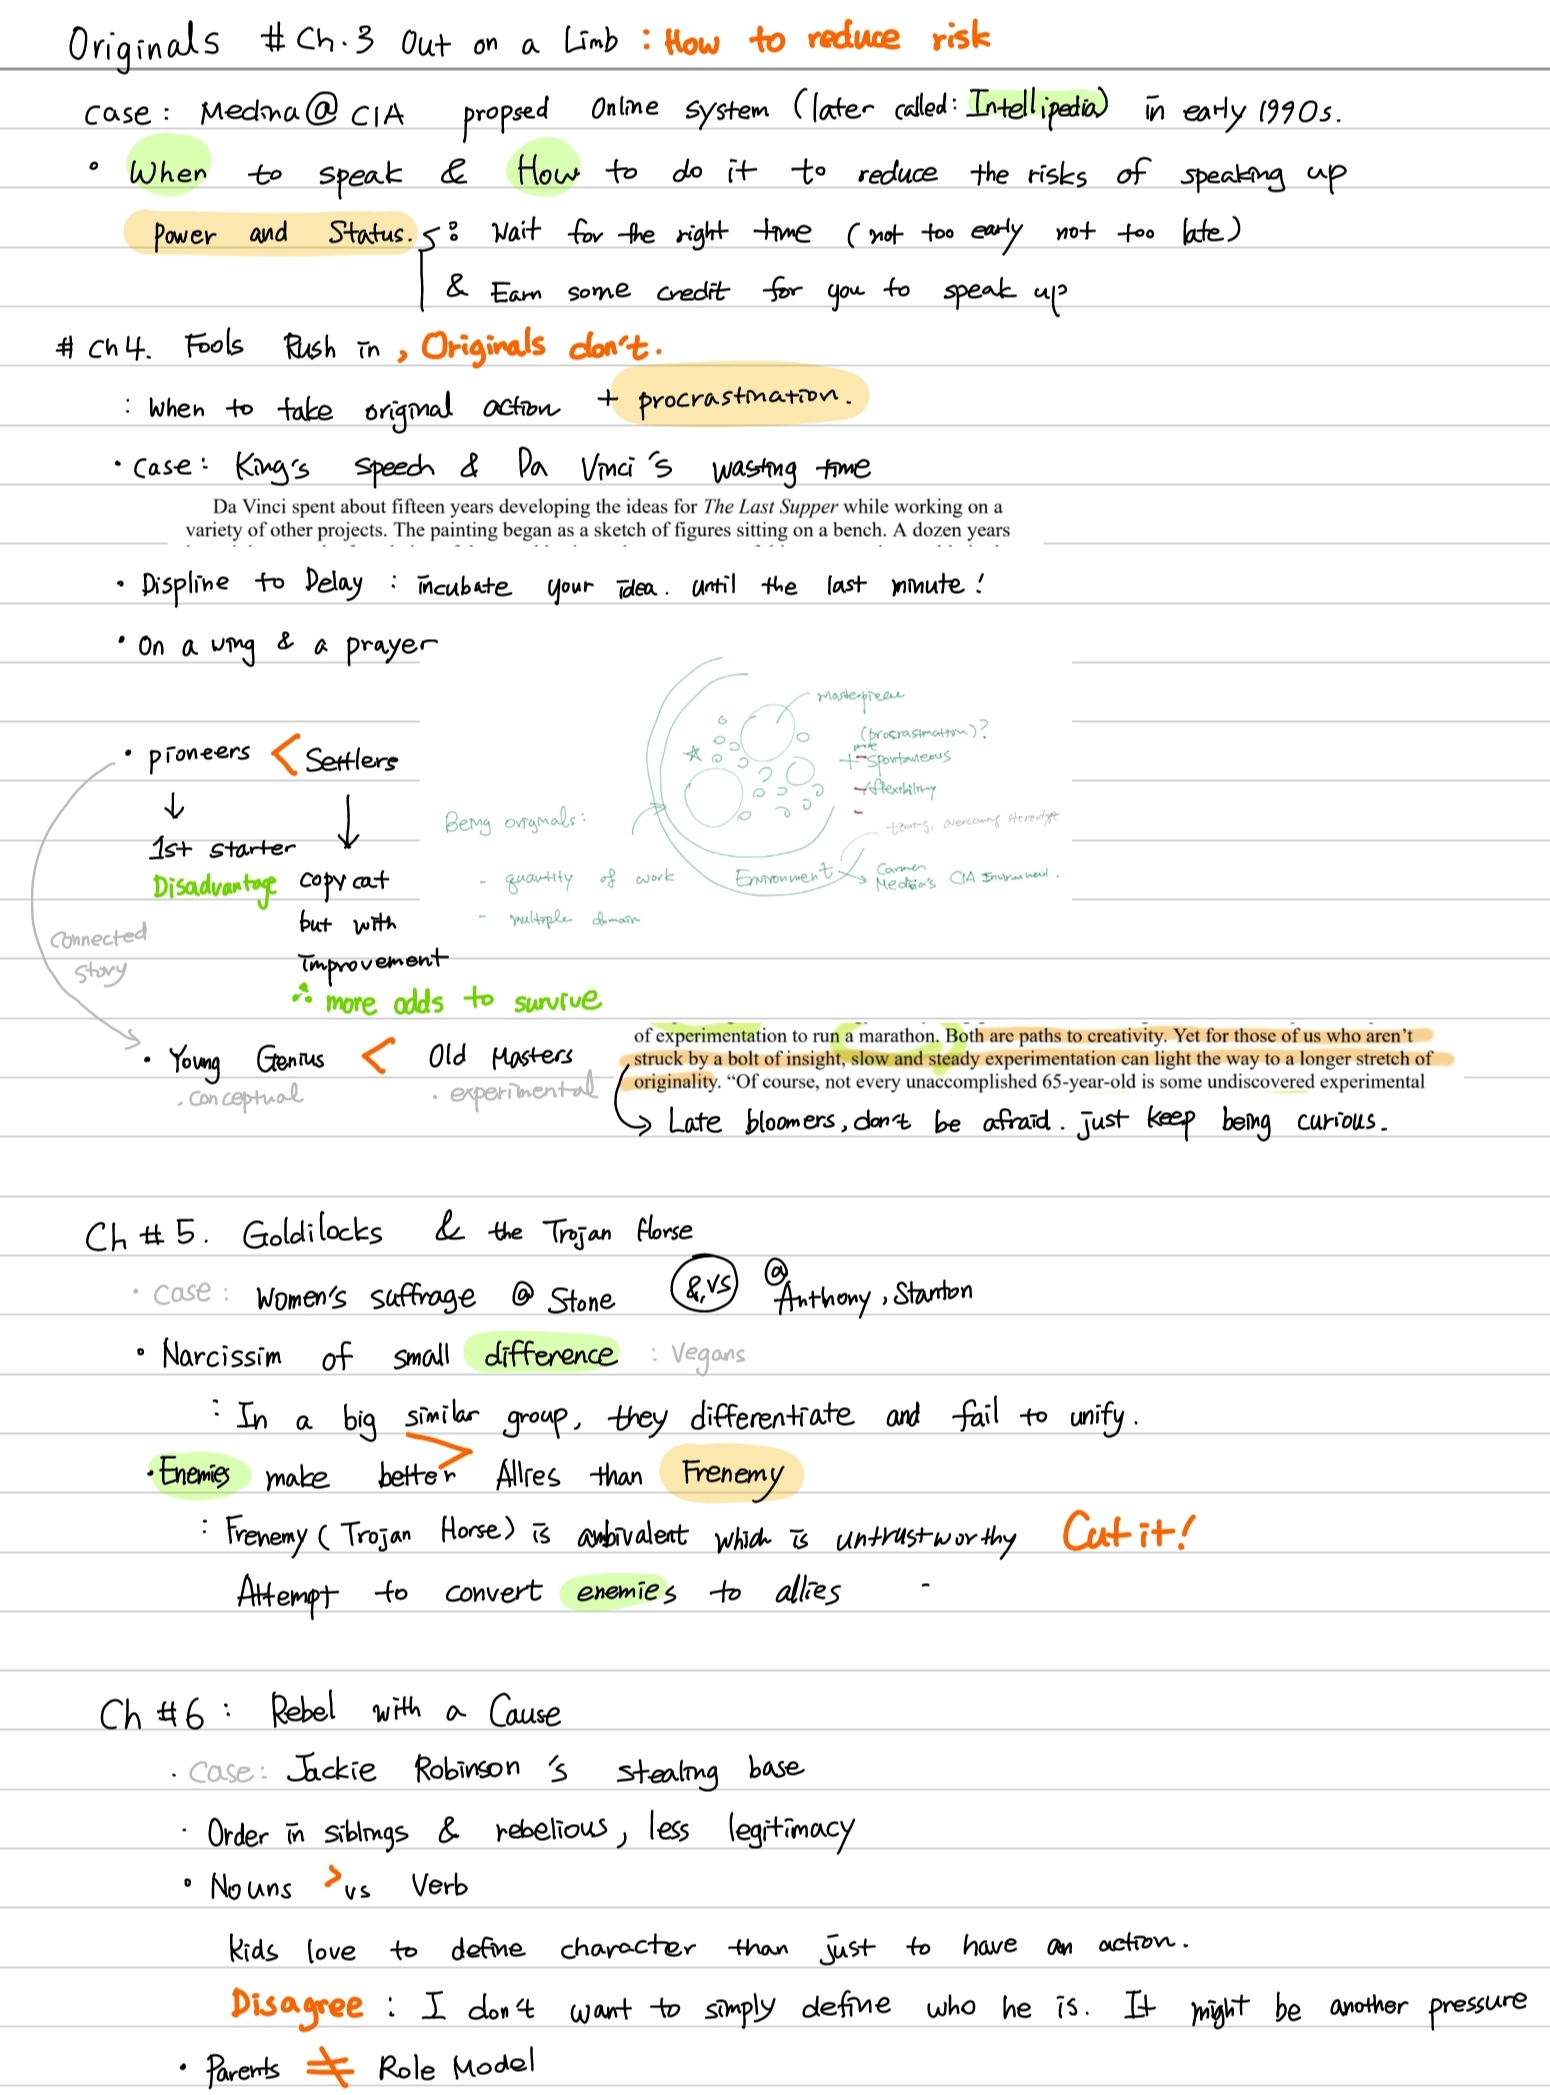 Originals # Ch.3 Out on a Limb : How to reduce risk
case : Medina @ CIA propsed Online system (later called: Intellipedia) in early 1990s.
• When to speak & How to do it to reduce the risks of speaking up
Power and Status. : Wait for the right time (not too early not too late)
& Earn some credit for you to speak up
# Ch 4. Fools Rush in, Originals don't.
: When to take original action + procrastination.
• Case: King's speech & Da Vinci's wasting time
Da Vinci spent about fifteen years developing the ideas for The Last Supper while working on a
variety of other projects. The painting began as a sketch of figures sitting on a bench. A dozen years
• Displine to Delay : incubate your idea. until the last minute!
• On a wing & a prayer
masterpiece
(procrastination)?
more
+ spontaneous
flexibility
timing, overcoming stereotype
Being originals:
- quantity of work
- multiple domain
Environment
Carmen
Medina's CIA Environment.
• pioneers < Settlers
↓ ↓
1st starter
Disadvantage copy cat
but with
improvement
∴ more adds to survive
Connected
story
• Young Genius < Old Masters
. conceptual • experimental
of experimentation to run a marathon. Both are paths to creativity. Yet for those of us who aren't
struck by a bolt of insight, slow and steady experimentation can light the way to a longer stretch of
originality. “Of course, not every unaccomplished 65-year-old is some undiscovered experimental
→ Late bloomers, don't be afraid. just keep being curious.
Ch # 5. Goldilocks & the Trojan Horse
• case : Women's suffrage @ Stone &,VS @ Anthony, Stanton
• Narcissim of small difference : Vegans
: In a big similar group, they differentiate and fail to unify.
• Enemies make better > Allies than Frenemy
: Frenemy (Trojan Horse) is ambivalent which is untrustworthy Cut it!
Attempt to convert enemies to allies -
Ch # 6 : Rebel with a Cause
. Case: Jackie Robinson's stealing base
• Order in siblings & rebelious, less legitimacy
• Nouns > vs Verb
Kids love to define character than just to have an action.
Disagree : I don't want to simply define who he is. It might be another pressure
• Parents ≠ Role Model